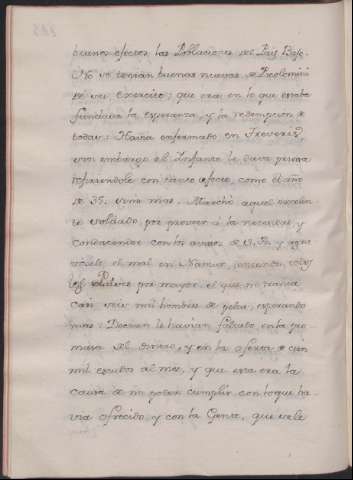 buenos efectos las Poblaciones del Pais Baſo.
No se tenian buenas nuevas de Picolomini
de su exercito, que era en lo que estaba
fundada la esperanza, y la redempcion de
todos: Havia enfermado en
sin embargo el Infante le dava priesa
pidiendole con tanto afecto, como el año
de 35. vino mas. Marchò aquel
soldado, por proveer à la necesidad, y
condolecido con los avisos de S. A. y
el mal en Namur,
los por mayor, el que no traia
casi seis mil hombres de pelea, esperando
mas: Decian le havian faltado, en la
del dinero, y en la oferta de cien
mil escudos al mes, y que esta era la
causa de no poder cumplir con lo que ha-
via ofrecido, y con la Gente, que se le